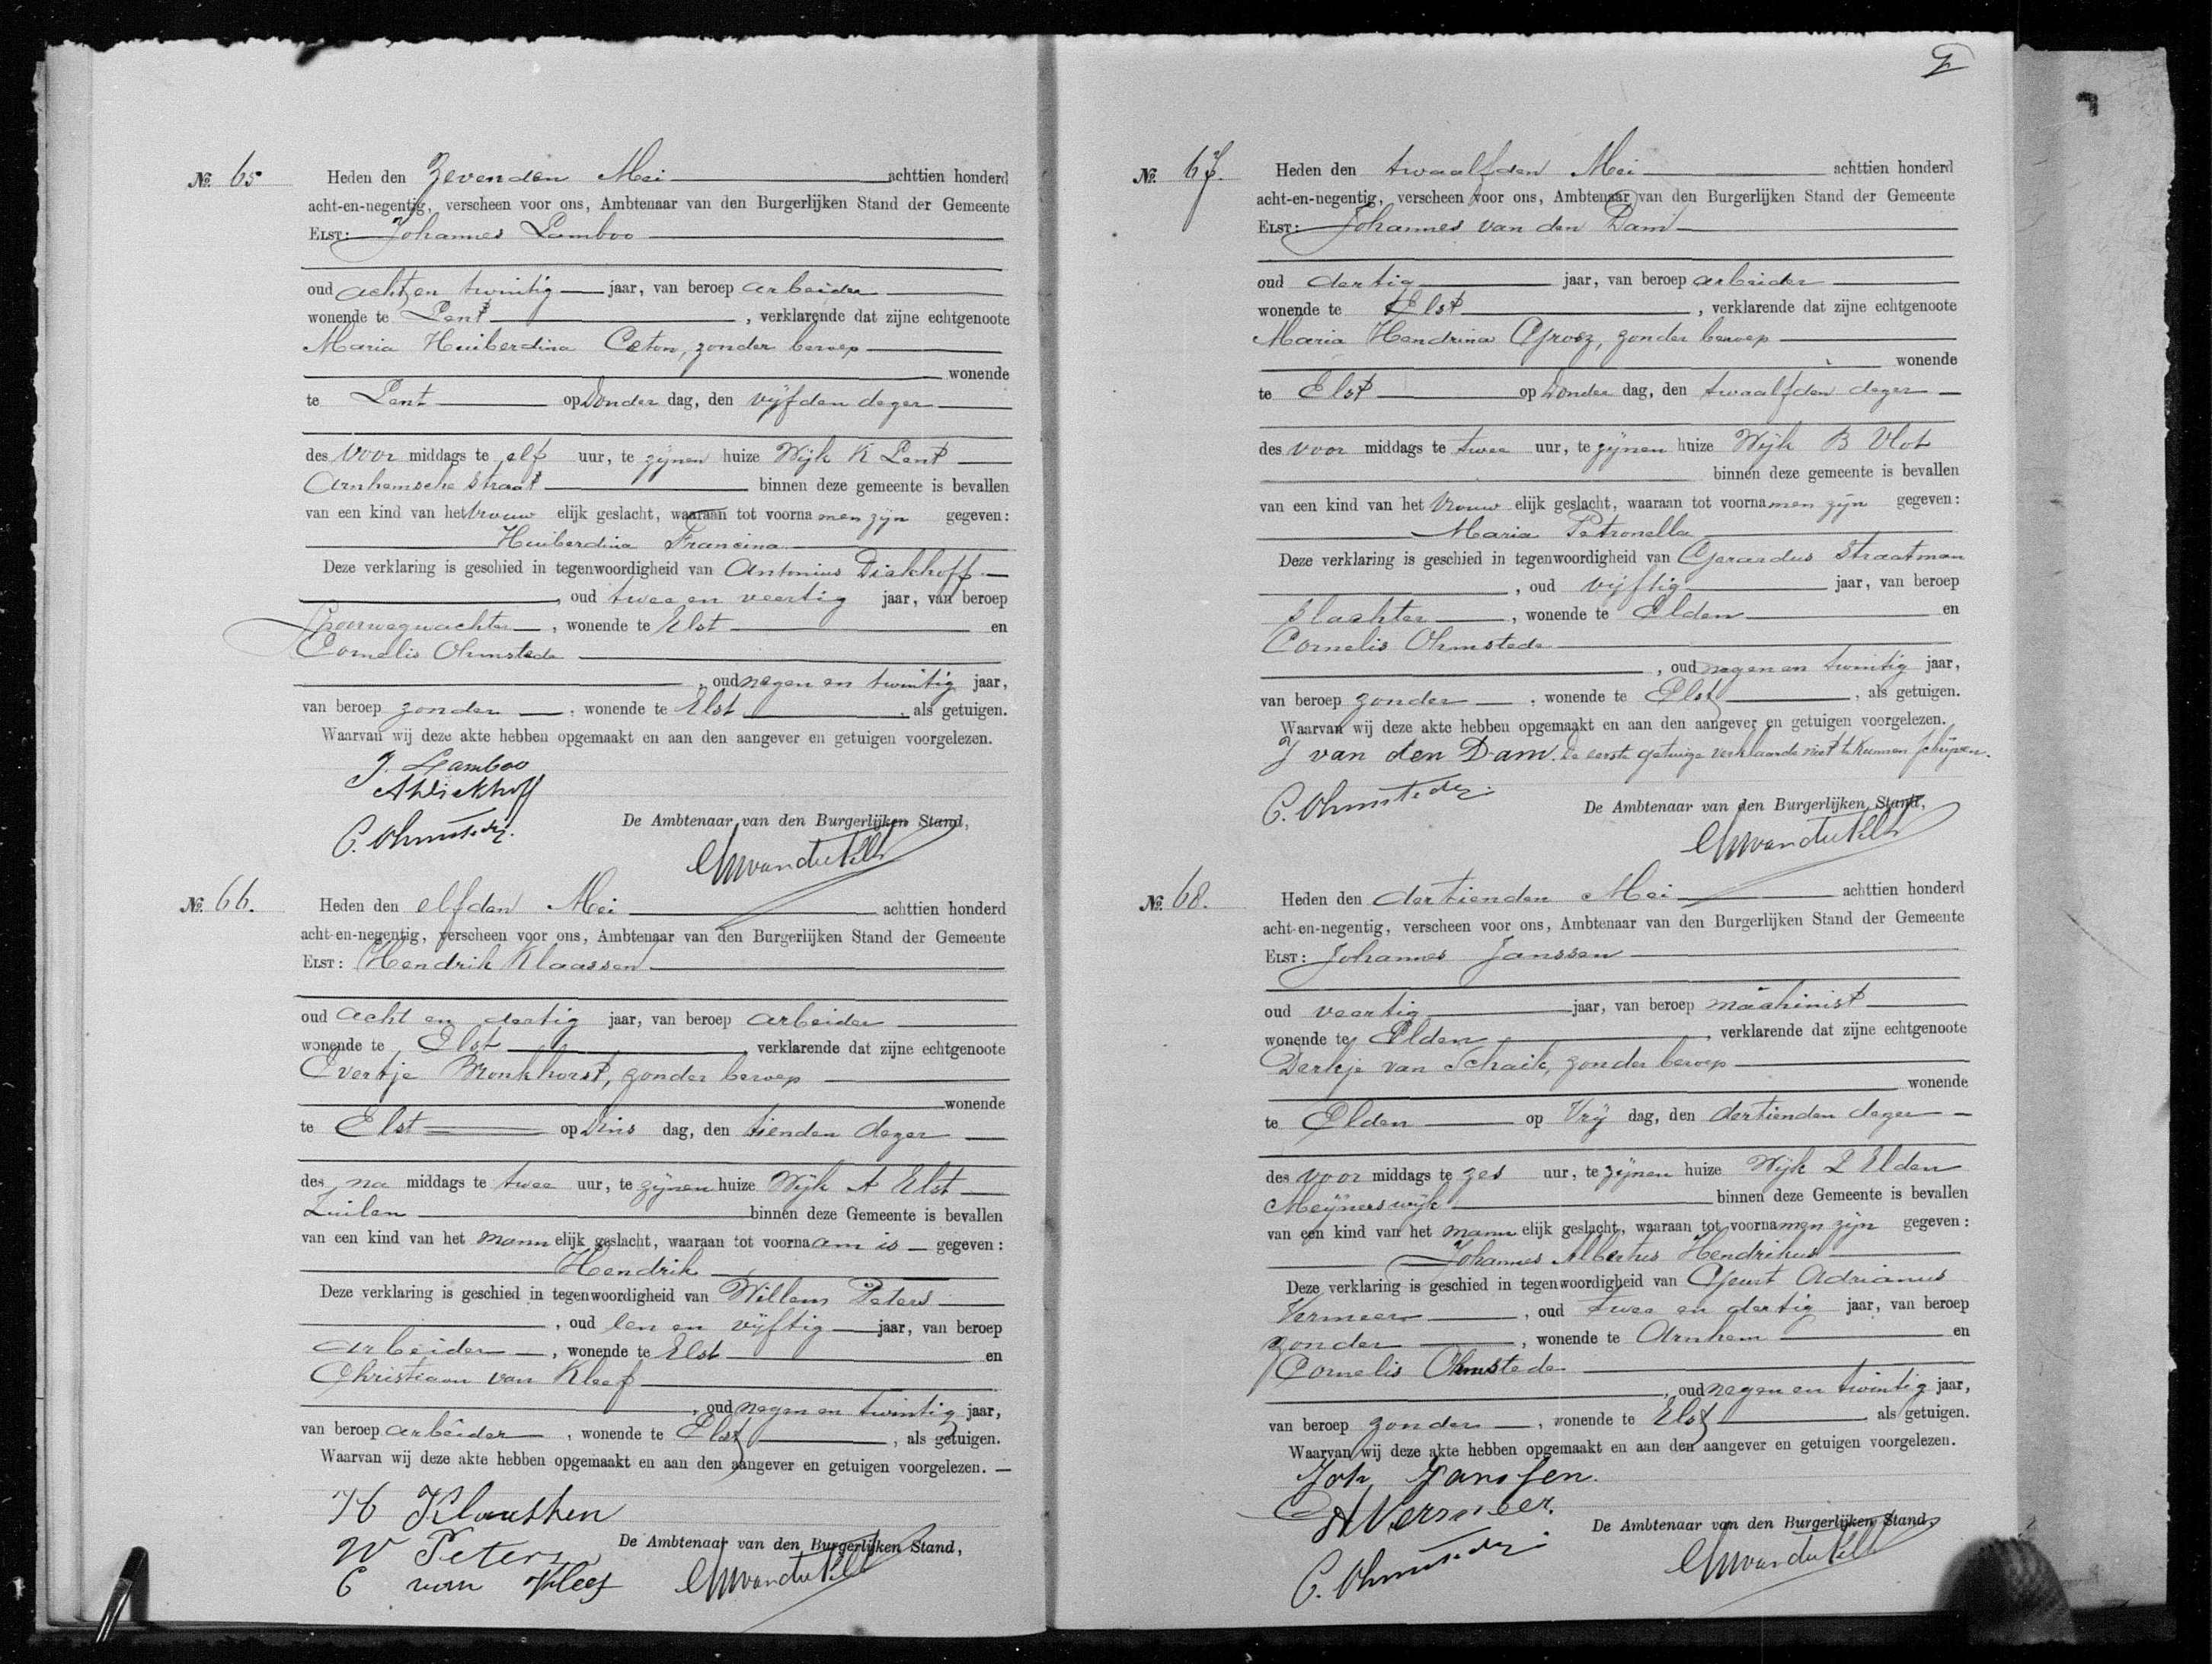 №. 65 Heden den Zevenden Mei achttien honderd
acht-en-negentig, verscheen voor ons, Ambtenaar van den Burgerlijken Stand der Gemeente
ELST: Johannes Lamboo
oud acht en twintig jaar, van beroep arbeider
wonende te Lent, verklarende dat zijne echtgenoote
Maria Huiberdina Ceton, zonder beroep
wonende
te Lent op Donder dag, den vijfden dezer
des voor middags te elf uur, te zijnen huize Wijk K Lent
Arnhemsche straat binnen deze gemeente is bevallen
van een kind van het vrouw elijk geslacht, waaraan tot voorna men zijn gegeven:
Huiberdina Francina
Deze verklaring is geschied in tegenwoordigheid van Antonius Diekhoff
, oud twee en veertig jaar, van beroep
Spoorwegwachter, wonende te Elst en
Cornelis Ohmstede
, oud negen en twintig jaar,
van beroep zonder, wonende te Elst, als getuigen.
Waarvan wij deze akte hebben opgemaakt en aan den aangever en getuigen voorgelezen.
J. Lamboo
AhDiekhoff
C. Ohmstede
De Ambtenaar van den Burgerlijken Stand,
№. 66. Heden den elfden Mei achttien honderd
acht-en-negentig, verscheen voor ons, Ambtenaar van den Burgerlijken Stand der Gemeente
ELST: Hendrik Klaassen
oud acht en dertig jaar, van beroep arbeider
wonende te Elst, verklarende dat zijne echtgenoote
Evertje Bronkhorst, zonder beroep
wonende
te Elst op Dins dag, den tienden dezer
des na middags te twee uur, te zijnen huize Wijk A Elst
Zuilen binnen deze Gemeente is bevallen
van een kind van het mann elijk geslacht, waaraan tot voorna am is gegeven:
Hendrik
Deze verklaring is geschied in tegenwoordigheid van Willem Peters
, oud een en vijftig jaar, van beroep
arbeider, wonende te Elst en
Christiaan van Kleef
, oud negen en twintig jaar,
van beroep arbeider, wonende te Elst, als getuigen.
Waarvan wij deze akte hebben opgemaakt en aan den aangever en getuigen voorgelezen.
H Klaassen
W Peters
C van Kleef
De Ambtenaar van den Burgerlijken Stand,
№. 67. Heden den twaalfden Mei achttien honderd
acht-en-negentig, verscheen voor ons, Ambtenaar van den Burgerlijken Stand der Gemeente
ELST: Johannes van den Dam
oud dertig jaar, van beroep arbeider
wonende te Elst, verklarende dat zijne echtgenoote
Maria Hendrina Groez, zonder beroep
wonende
te Elst op Donder dag, den twaalfden dezer
des voor middags te twee uur, te zijnen huize Wijk B Vlot
binnen deze gemeente is bevallen
van een kind van het vrouw elijk geslacht, waaraan tot voorna men zijn gegeven:
Maria Petronella
Deze verklaring is geschied in tegenwoordigheid van Gerardus Straatman
, oud vijftig jaar, van beroep
slachter, wonende te Elden en
Cornelis Ohmstede
, oud negen en twintig jaar,
van beroep zonder, wonende te Elst, als getuigen.
Waarvan wij deze akte hebben opgemaakt en aan den aangever en getuigen voorgelezen.
J van den Dam. De eerste getuige verklaarde niet te kunnen schrijven.
C. Ohmstede
De Ambtenaar van den Burgerlijken Stand,
№. 68. Heden den dertienden Mei achttien honderd
acht-en-negentig, verscheen voor ons, Ambtenaar van den Burgerlijken Stand der Gemeente
ELST: Johannes Janssen
oud veertig jaar, van beroep machinist
wonende te Elden, verklarende dat zijne echtgenoote
Derkje van Schaik, zonder beroep
wonende
te Elden op Vrij dag, den dertienden dezer
des voor middags te zes uur, te zijnen huize Wijk L Elden
Meijnerswijk binnen deze Gemeente is bevallen
van een kind van het mann elijk geslacht, waaraan tot voorna men zijn gegeven:
Johannes Albertus Hendrikus
Deze verklaring is geschied in tegenwoordigheid van Geurt Adrianus
Vermeer, oud twee en dertig jaar, van beroep
zonder, wonende te Arnhem en
Cornelis Ohmstede
, oud negen en twintig jaar,
van beroep zonder, wonende te Elst, als getuigen.
Waarvan wij deze akte hebben opgemaakt en aan den aangever en getuigen voorgelezen.
Joh Janssen
GAVermeer.
C. Ohmstede
De Ambtenaar van den Burgerlijken Stand,